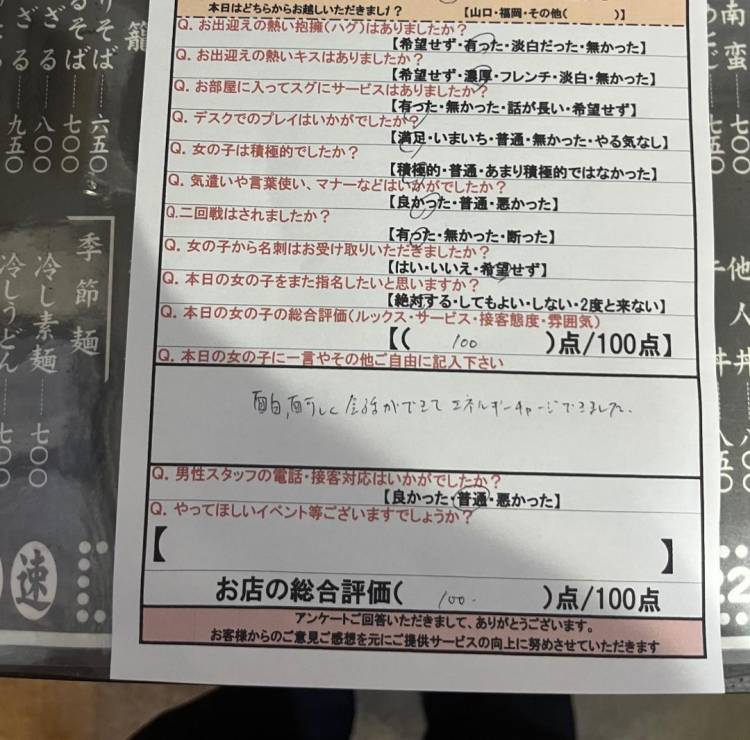 本日はどちらからお越しいただきました? 【山口・福岡・その他( )】
Q. お出迎えの熱い抱擁(ハグ)はありましたか?
【希望せず・有った・淡白だった・無かった】
Q. お出迎えの熱いキスはありましたか?
【希望せず・濃厚・フレンチ・淡白・無かった】
Q. お部屋に入ってスグにサービスはありましたか?
【有った・無かった・話が長い・希望せず】
Q. デスクでのプレイはいかがでしたか?
【満足・いまいち・普通・無かった・やる気なし】
Q. 女の子は積極的でしたか?
【積極的・普通・あまり積極的ではなかった】
Q. 気遣いや言葉使い、マナーなどはいかがでしたか?
【良かった・普通・悪かった】
Q.二回戦はされましたか?
【有った・無かった・断った】
Q. 女の子から名刺はお受け取りいただきましたか?
【はい・いいえ・希望せず】
Q. 本日の女の子をまた指名したいと思いますか?
【絶対する・してもよい・しない・2度と来ない】
Q. 本日の女の子の総合評価(ルックス・サービス・接客態度・雰囲気)
【( 100 )点/100点】
Q. 本日の女の子に一言やその他ご自由に記入下さい
しく会話ができてエネルギーチャージできました.
Q. 男性スタッフの電話・接客対応はいかがでしたか?
【良かった・普通・悪かった】
Q. やってほしいイベント等ございますでしょうか?
【 】
お店の総合評価( 100. )点/100点
アンケートご回答いただきまして、ありがとうございます。
お客様からのご意見ご感想を元にご提供サービスの向上に努めさせていただきます
籠
そば 六五〇
るそば 七〇〇
ざる 八〇〇
ざる 九五〇
季節麺
冷し素麺 七〇〇
冷しうどん 七〇〇
速
南蛮
他人丼 八五〇